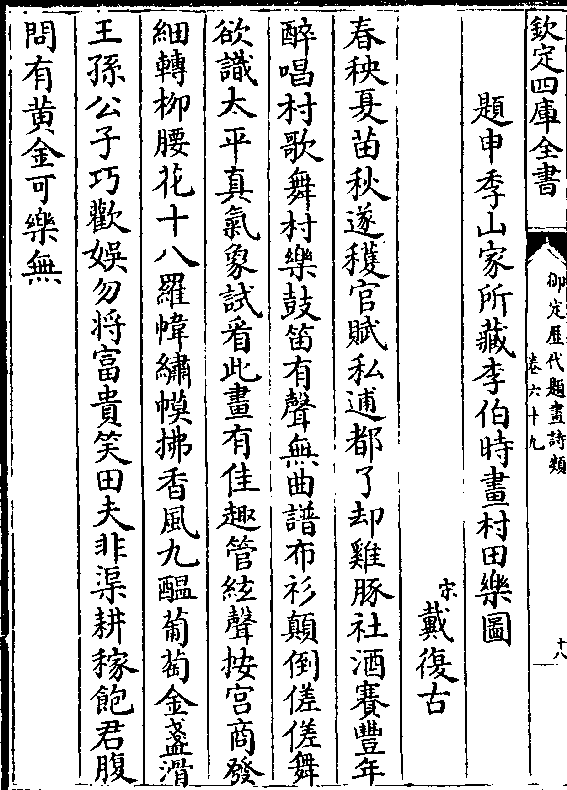 欽定四庫全書
御定歷代題畫詩類
卷六十九
十八
題申季山家所藏李伯時畫村田樂圖
宋戴復古
春秧夏苗秋遂穫官賦私逋都了却雞豚社酒賽豐年
醉唱村歌舞村樂鼓笛有聲無曲譜布衫顛倒傞傞舞
欲識太平真氣象試看此畫有佳趣管絃聲按宮商發
細轉栁腰花十八羅幃繡幙拂香風九醖葡萄金盞滑
王孫公子巧歡娛勿将富貴笑田夫非渠耕稼飽君腹
問有黄金可樂無